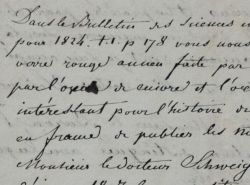 Dans le Bulletin des Sciences
pour 1824. t. 1. p 178 vous
rouge ancien faite par
par l'oxide de cuivre et l'
intéressant pour l'histoire
en france de publier les
Monsieur le docteur Schweig